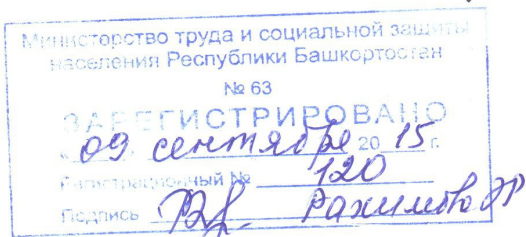 Министерство труда и социальной защиты
населения Республики Башкортостан
№ 63
ЗАРЕГИСТРИРОВАНО
« 09 сентября 20 15 г.
Регистрационный № 120
Подпись Рахимова